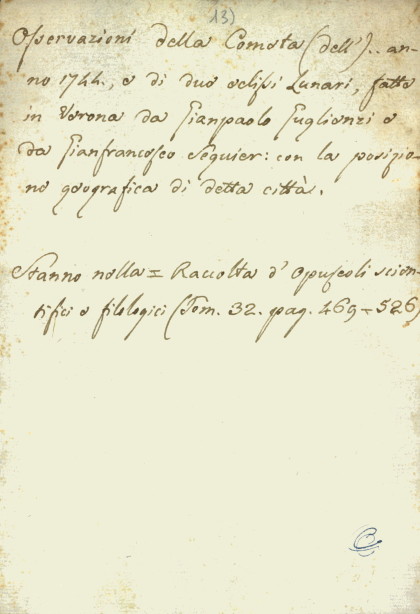 13)
Osservazioni della Cometa (dell').. an-
no 1744, e di due eclissi Lunari, fatte
in Verona da Gianpaolo Guglienzi e
da Gianfrancesco Seguier: con la posizio-
ne geografica di detta città.
Stanno nella = Raccolta d' Opuscoli scien-
tifici e filologici (Tom. 32. pag. 469-526)